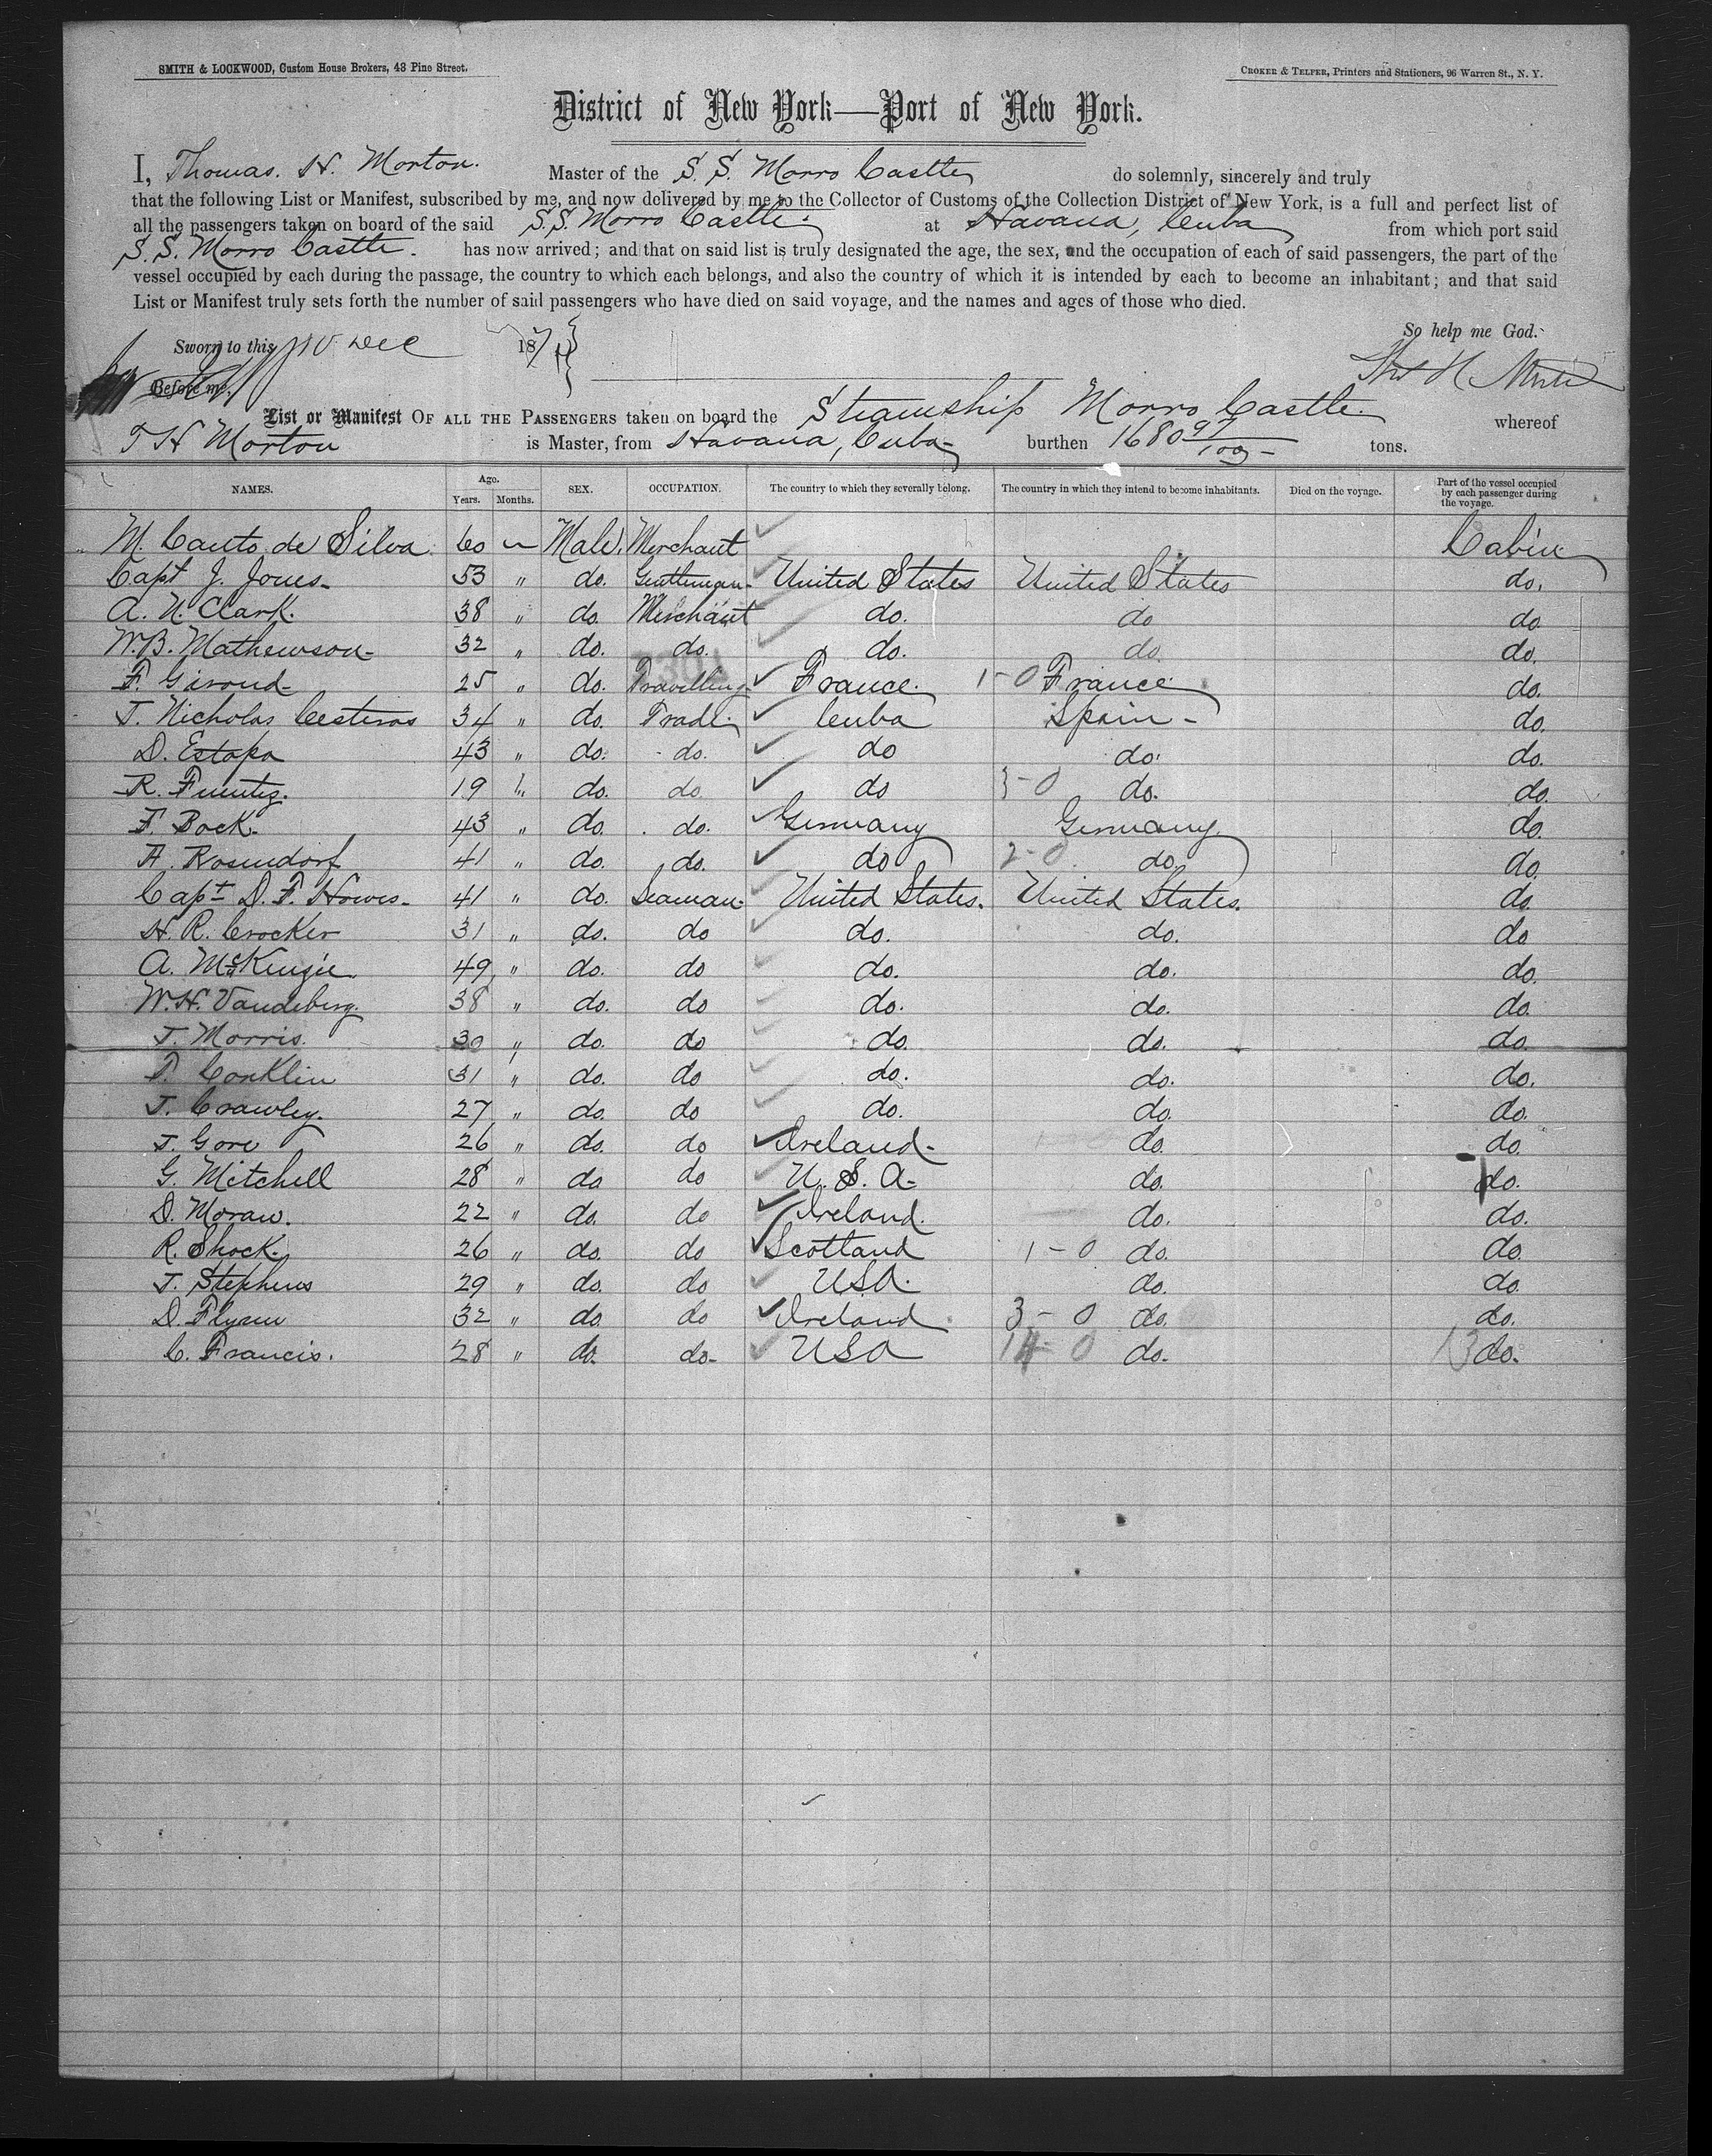 SMITH & LOCKWOOD, Custom House Brokers, 43 Pine Street.
CROKER & TELFER, Printers and Stationers, 96 Warren St., N. Y.
District of New York—Port of New York.
I, Thomas. H. Morton. Master of the S. S. Morro Castle do solemnly, sincerely and truly
that the following List or Manifest, subscribed by me, and now delivered by me to the Collector of Customs of the Collection District of New York, is a full and perfect list of
all the passengers taken on board of the said S.S. Morro Castle. at Havana, Cuba from which port said
S. S. Morro Castle. has now arrived; and that on said list is truly designated the age, the sex, and the occupation of each of said passengers, the part of the
vessel occupied by each during the passage, the country to which each belongs, and also the country of which it is intended by each to become an inhabitant; and that said
List or Manifest truly sets forth the number of said passengers who have died on said voyage, and the names and ages of those who died.
So help me God.
Sworn to this Dec 187
Before me,
List or Manifest OF ALL THE PASSENGERS taken on board the Steamship Morro Castle. whereof
T H Morton is Master, from Havana, Cuba- burthen 1680 97/100 tons.
NAMES. Age. Years. Months. SEX. OCCUPATION. The country to which they severally belong. The country in which they intend to become inhabitants. Died on the voyage. Part of the vessel occupied by each passenger during the voyage.
M. Canto de Silva 60 Male. Merchant Cabin
Capt J. Jones- 53 " do. Gentleman- United States United States do.
A. N. Clark. 38 " do. Merchant do. do do
W.B. Mathewson- 32 " do. do. do. do. do.
F. Giroud- 25 " do. Travelling- France. 1-0 France do.
J. Nicholas Cesteros 34 " do. Trade Cuba Spain- do.
D. Estapa 43 " do. do. do do. do.
R. Fuentes. 19 " do. do. do 3-0 do. do.
F. Bock. 43 " do. do. Germany Germany. do.
A. Rosendorf 41 " do. do. do 2-0 do do.
Capt D. F. Howes- 41 " do. Seaman- United States. United States. do.
H. R. Crocker 31 " do. do do. do. do
A. McKenzie. 49 " do. do do. do. do.
W.H. Vandeberg. 38 " do. do do. do. do.
J. Morris. 30 " do. do do. do. do.
T. Conklin 31 " do. do do. do. do.
J. Crawley. 27 " do. do do. do. do.
J. Gore 26 " do. do Ireland- do. do.
G. Mitchell 28 " do do U. S. A- do. do.
D. Moran. 22 " do. do Ireland. do. do.
R. Shock. 26 " do. do Scotland 1-0 do. do.
J. Stephens 29 " do. do USA. do. do.
D. Flynn 32 " do. do Ireland 3-0 do. do.
C. Francis. 28 " do. do- USA do. do.